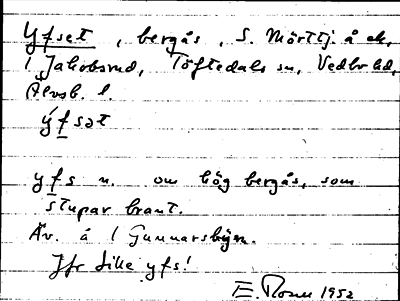 Yfset, bergås, S. Mörttj. å ek.
1 Jakobsrud, Töftedals sn, Vedbo hd,
Älvsb. l.
ýfsət
yfs n. om hög bergås, som
stupar brant.
Äv. å 1 Gunnarsbyn.
Jfr Lilla yfs!
E. Rosell 1952